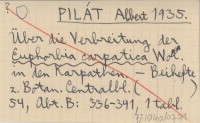 PILÁT Albert 1935.
Über die Verbreitung der
Euphorbia carpatica Woł.
in den Karpathen. - Beihefte
z. Botan. Centralbl. (
54, Abt. B: 336-341, 1 tabl.